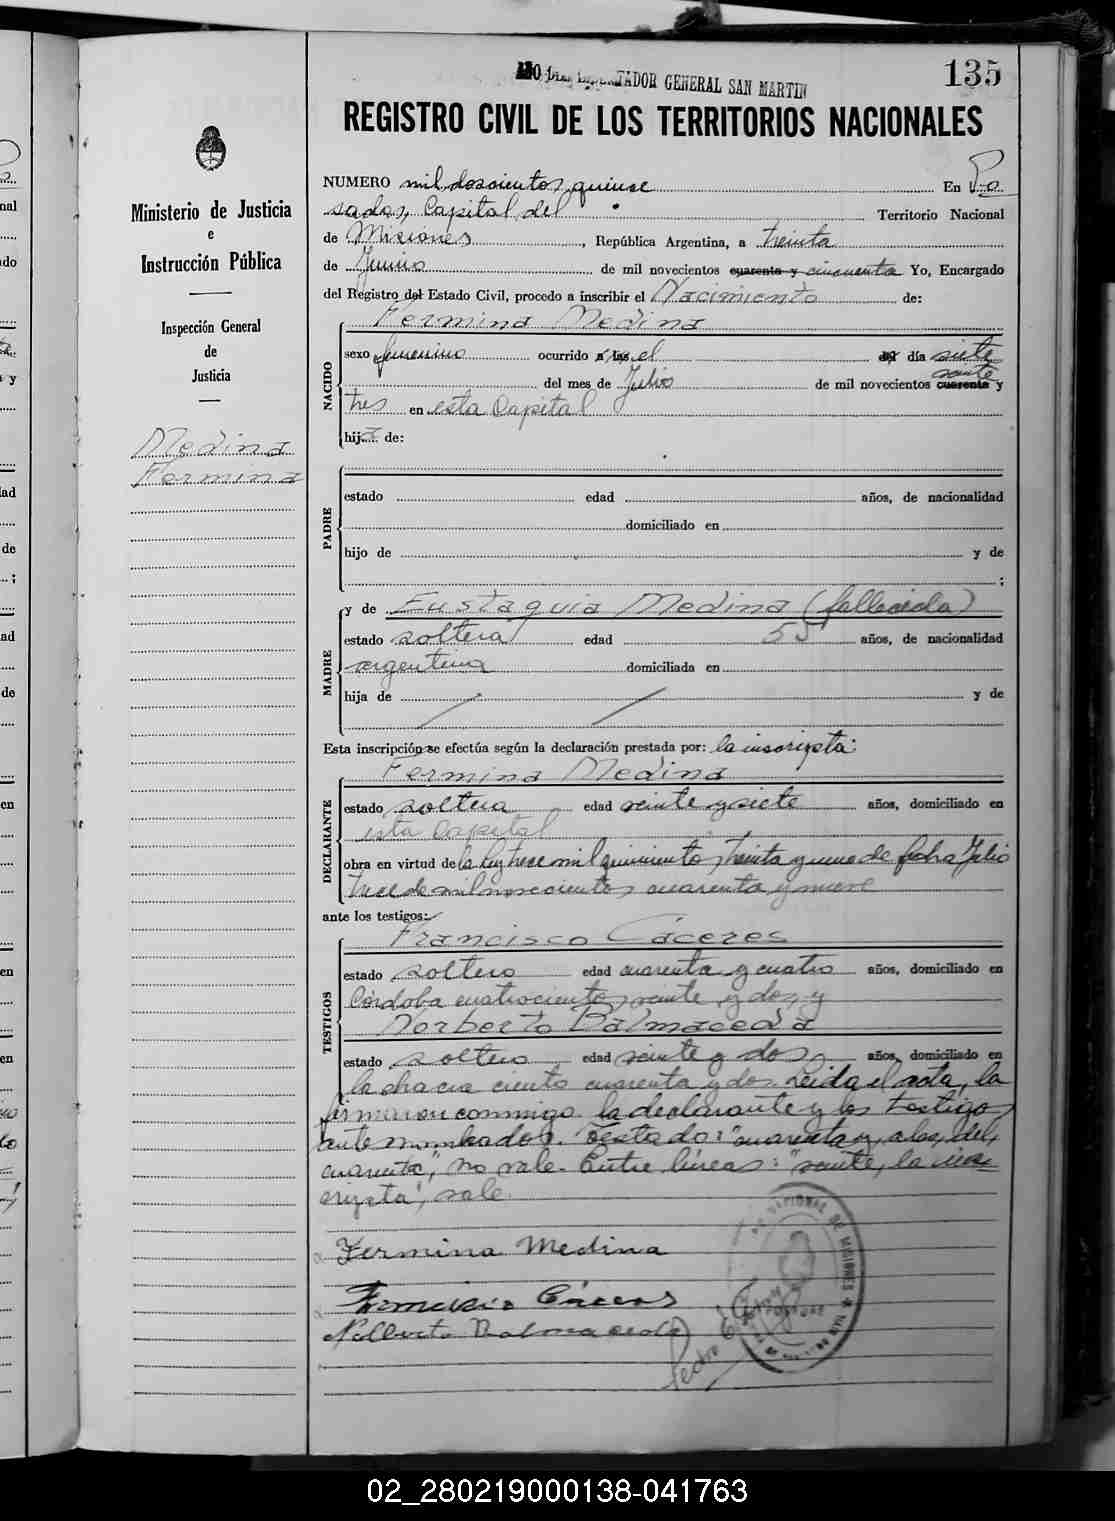 135
AÑO DEL LIBERTADOR GENERAL SAN MARTIN
REGISTRO CIVIL DE LOS TERRITORIOS NACIONALES
Ministerio de Justicia
e
Instrucción Pública
Inspección General
de
Justicia
Medina
Fermina
NUMERO mil doscientos quinse En Po
sadas, Capital del Territorio Nacional
de Misiones, República Argentina, a treinta
de Junio de mil novecientos cuarenta y cincuenta Yo, Encargado
del Registro del Estado Civil, procedo a inscribir el Nacimiento de:
Fermina Medina
NACIDO
sexo femenino ocurrido a las el del día siete
veinte
del mes de Julio de mil novecientos cuarenta y
tres en esta Capital
hija de:
PADRE
estado edad años, de nacionalidad
domiciliado en
hijo de y de
;
MADRE
y de Eustaquia Medina (fallecida)
estado soltera edad 55 años, de nacionalidad
argentina domiciliada en
hija de y de
Esta inscripción se efectúa según la declaración prestada por: la inscripta:
DECLARANTE
Fermina Medina
estado soltera edad veinte y siete años, domiciliado en
esta Capital
obra en virtud de la ley trece mil quinientos treinta y uno de fecha Julio
trece de mil novecientos cuarenta y nueve
ante los testigos:
TESTIGOS
Francisco Cáceres
estado soltero edad cuarenta y cuatro años, domiciliado en
Córdoba cuatrocientos veinte y dos y
Norberto Balmaceda
estado soltero edad veinte y dos años, domiciliado en
la chacra ciento cuarenta y dos. Leida el acta, la
firmaron conmigo la declarante y los testigos
ante nombrados. Testado: "cuarenta y, a las, del,
cuarenta", no vale. Entre líneas: "veinte, la ins
cripta", vale.
Fermina Medina
Francisco Cáceres
Norberto Balmaceda
Pedro
NACIONAL DE MISIONES
02_280219000138-041763